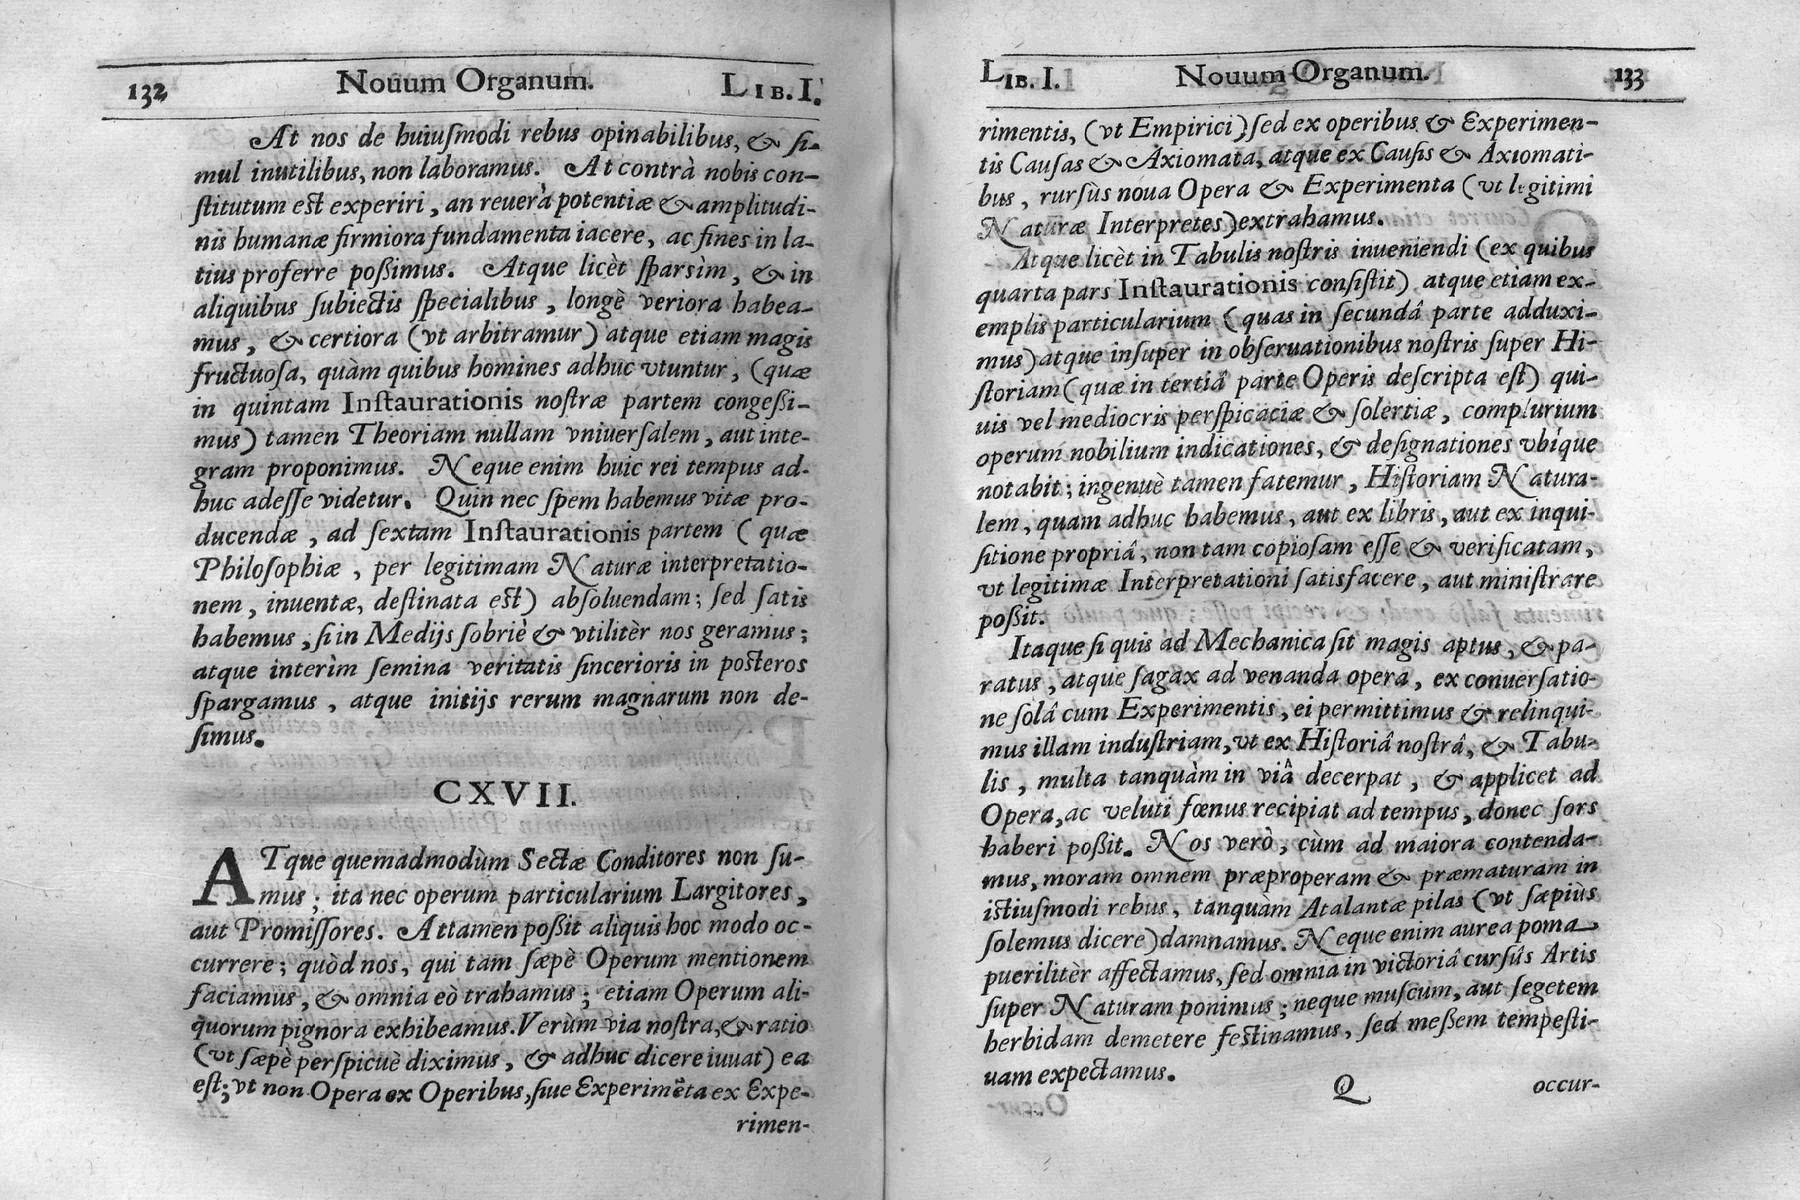 132 Nouum Organum. LIB. I.
At nos de huiuſmodi rebus opinabilibus, & ſi-
mul inutilibus, non laboramus. At contrà nobis con-
ſtitutum eſt experiri, an reuerà potentiæ & amplitudi-
nis humanæ firmiora fundamenta iacere, ac fines in la-
tius proferre poßimus. Atque licèt ſparsìm, & in
aliquibus ſubiectis ſpecialibus, longè veriora habea-
mus, & certiora (vt arbitramur) atque etiam magis
fructuoſa, quàm quibus homines adhuc vtuntur, (quæ
in quintam Inſtaurationis noſtræ partem congeßi-
mus) tamen Theoriam nullam vniuerſalem, aut inte-
gram proponimus. Neque enim huic rei tempus ad-
huc adeſſe videtur. Quin nec ſpem habemus vitæ pro-
ducendæ, ad ſextam Inſtaurationis partem (quæ
Philoſophiæ, per legitimam Naturæ interpretatio-
nem, inuentæ, deſtinata eſt) abſoluendam; ſed ſatis
habemus, ſi in Medijs ſobriè & vtilitèr nos geramus;
atque interìm ſemina veritatis ſincerioris in poſteros
ſpargamus, atque initijs rerum magnarum non de-
ſimus.
CXVII.
ATque quemadmodùm Sectæ Conditores non ſu-
mus; ita nec operum particularium Largitores,
aut Promiſſores. Attamèn poßit aliquis hoc modo oc-
currere; quòd nos, qui tam ſæpè Operum mentionem
faciamus, & omnia eò trahamus; etiam Operum ali-
quorum pignora exhibeamus. Verùm via noſtra, & ratio
(vt ſæpè perſpicuè diximus, & adhuc dicere iuuat) ea
eſt; vt non Opera ex Operibus, ſiue Experimẽta ex Expe-
rimen-
LIB. I. Nouum Organum. 133
rimentis, (vt Empirici) ſed ex operibus & Experimen-
tis Cauſas & Axiomata, atque ex Cauſis & Axiomati-
bus, rurſùs noua Opera & Experimenta (vt legitimi
Naturæ Interpretes) extrahamus.
Atque licèt in Tabulis noſtris inueniendi (ex quibus
quarta pars Inſtaurationis conſiſtit) atque etiam ex-
emplis particularium (quas in ſecundâ parte adduxi-
mus) atque inſuper in obſeruationibus noſtris ſuper Hi-
ſtoriam (quæ in tertiâ parte Operis deſcripta eſt) qui-
uis vel mediocris perſpicaciæ & ſolertiæ, complurium
operum nobilium indicationes, & deſignationes vbíque
notabit; ingenuè tamen fatemur, Hiſtoriam Natura-
lem, quam adhuc habemus, aut ex libris, aut ex inqui-
ſitione propriâ, non tam copioſam eſſe & verificatam,
vt legitimæ Interpretationi ſatisfacere, aut miniſtrare
poßit.
Itaque ſi quis ad Mechanica ſit magis aptus, & pa-
ratus, atque ſagax ad venanda opera, ex conuerſatio-
ne ſolâ cum Experimentis, ei permittimus & relinqui-
mus illam induſtriam, vt ex Hiſtoriâ noſtrâ, & Tabu-
lis, multa tanquàm in viâ decerpat, & applicet ad
Opera, ac veluti fœnus recipiat ad tempus, donec ſors
haberi poßit. Nos verò, cùm ad maiora contenda-
mus, moram omnem præproperam & præmaturam in
iſtiuſmodi rebus, tanquàm Atalantæ pilas (vt ſæpiùs
ſolemus dicere) damnamus. Neque enim aurea poma
puerilitèr affectamus, ſed omnia in victoriâ cursûs Artis
ſuper Naturam ponimus; neque muſcum, aut ſegetem
herbidam demetere feſtinamus, ſed meßem tempeſti-
uam expectamus.
Q occur-